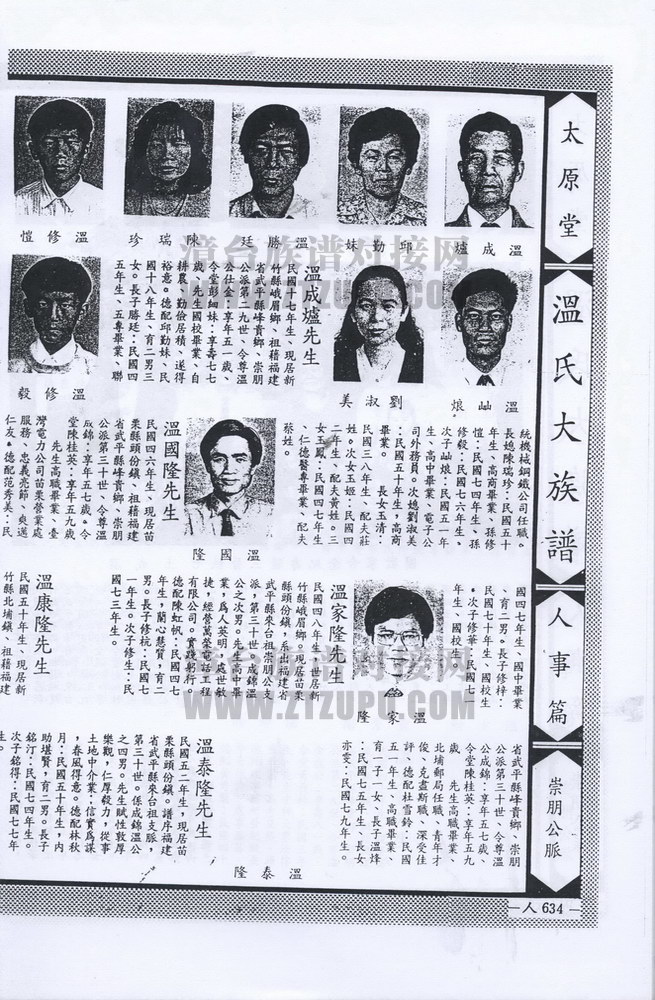 太原堂
溫氏大族譜
人事篇
崇朋公脈
溫成爐
邱勤妹
溫勝廷
陳瑞珍
溫修愷
溫㠶烺
劉淑美
溫修毅
溫成爐先生
民國十七年生、現居新
竹縣峨眉鄉、祖籍福建
省武平縣峰貴鄉、崇朋
公派第二九世、令尊溫
公仕金：享年五一歲、
令堂彭細妹：享壽七七
歲、先生國校畢業、自
耕農、勤儉居積、遂得
裕意。德配邱勤妹、民
國十八年生、育二男三
女。長子勝廷：民國四
五年生、五專畢業、聯
統機械鋼鐵公司任職。
長媳陳瑞珍：民國五十
年生、高商畢業、孫修
愷：民國七四年生、孫
修毅：民國七六年生。
次子㠶烺：民國五一年
生、高中畢業、電子公
司外務員。次媳劉淑美
：民國五十年生，高商
畢業。 長女玉清：
民國三八年生、配夫莊
姓。次女玉姬：民國四
二年生、配夫黃姓。三
女玉鳳：民國四七年生
、仁德醫專畢業、配夫
蔡姓。
溫國隆
溫國隆先生
民國四六年生、現居苗
栗縣頭份鎮、祖籍福建
省武平縣峰貴鄉、崇朋
公派第三十世、令尊溫
成錦：享年五七歲。令
堂陳桂英：享年五九歲
先生高職畢業、臺
灣電力公司苗栗營業處
服務、忠義亮節、爽邁
仁友。德配范秀美：民
國四七年生、國中畢業
、育二男。長子修梓：
民國七十年生、國校生
。次子修華：民國七一
年生、國校生。
溫家隆
溫家隆先生
民國四八年生、世居新
竹縣峨眉鄉、現居苗栗
縣頭份鎮，系出福建省
武平縣來台祖崇朋公支
派，第三十世。成錦溫
公之次男。先生高中畢
業，為人英明，處世敏
捷，經營萬榮電話工程
有限公司。實踐躬行。
德配陳虹帆：民國四七
年生，蘭心慧質，育二
男。長子修杭：民國七
一年生。次子修生：民
國七三年生。
溫康隆先生
民國五十年生、現居新
竹縣北埔鎮、祖籍福建
省武平縣峰貴鄉、崇朋
公派第三十世、令尊溫
公成錦：享年五七歲、
令堂陳桂英：享年五九
歲 先生高職畢業、
北埔郵局任職、青年才
俊、克盡斯職、深受佳
評、德配杜雪鈴：民國
五一年生、高職畢業、
育一子一女、長子溫烽
：民國七五年生、長女
亦雯：民國七九年生。
溫泰隆
溫泰隆先生
民國五二年生，現居苗
栗縣頭份鎮。譜序福建
省武平縣來台祖支脈，
第三十世。係成錦溫公
之四男。先生賦性敦厚
樂觀，仁厚毅力，從事
土地中介業：信實為謀
，春風得意。德配林秋
月：民國五十年生，內
助堪賢，育二男。長子
銘汀：民國七四年生。
次子銘得：民國七七年
生。
人634
漳台族谱对接网
WWW.ZTZUPU.COM
漳台族谱对接网
WWW.ZTZUPU.COM